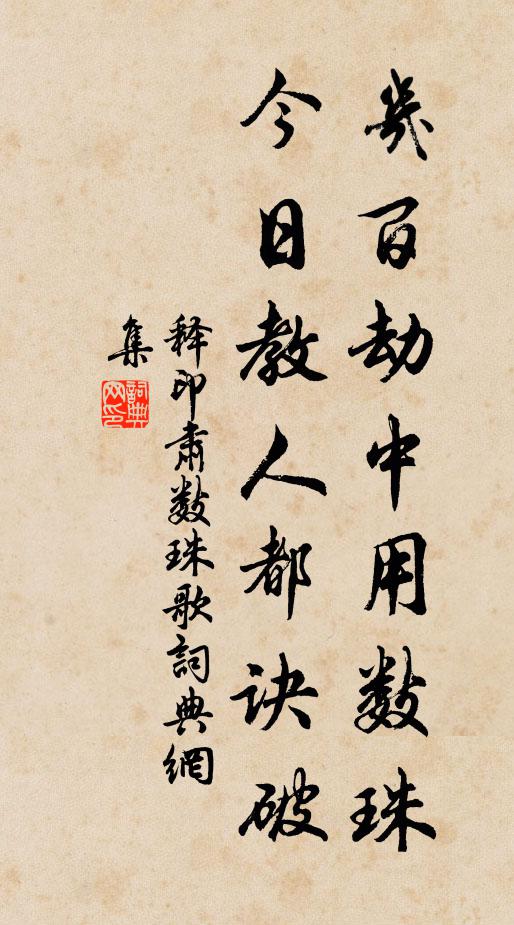 幾百劫中用数珠
今日教人都诀破
释印肃数珠歌詞典網
集
詞典網印